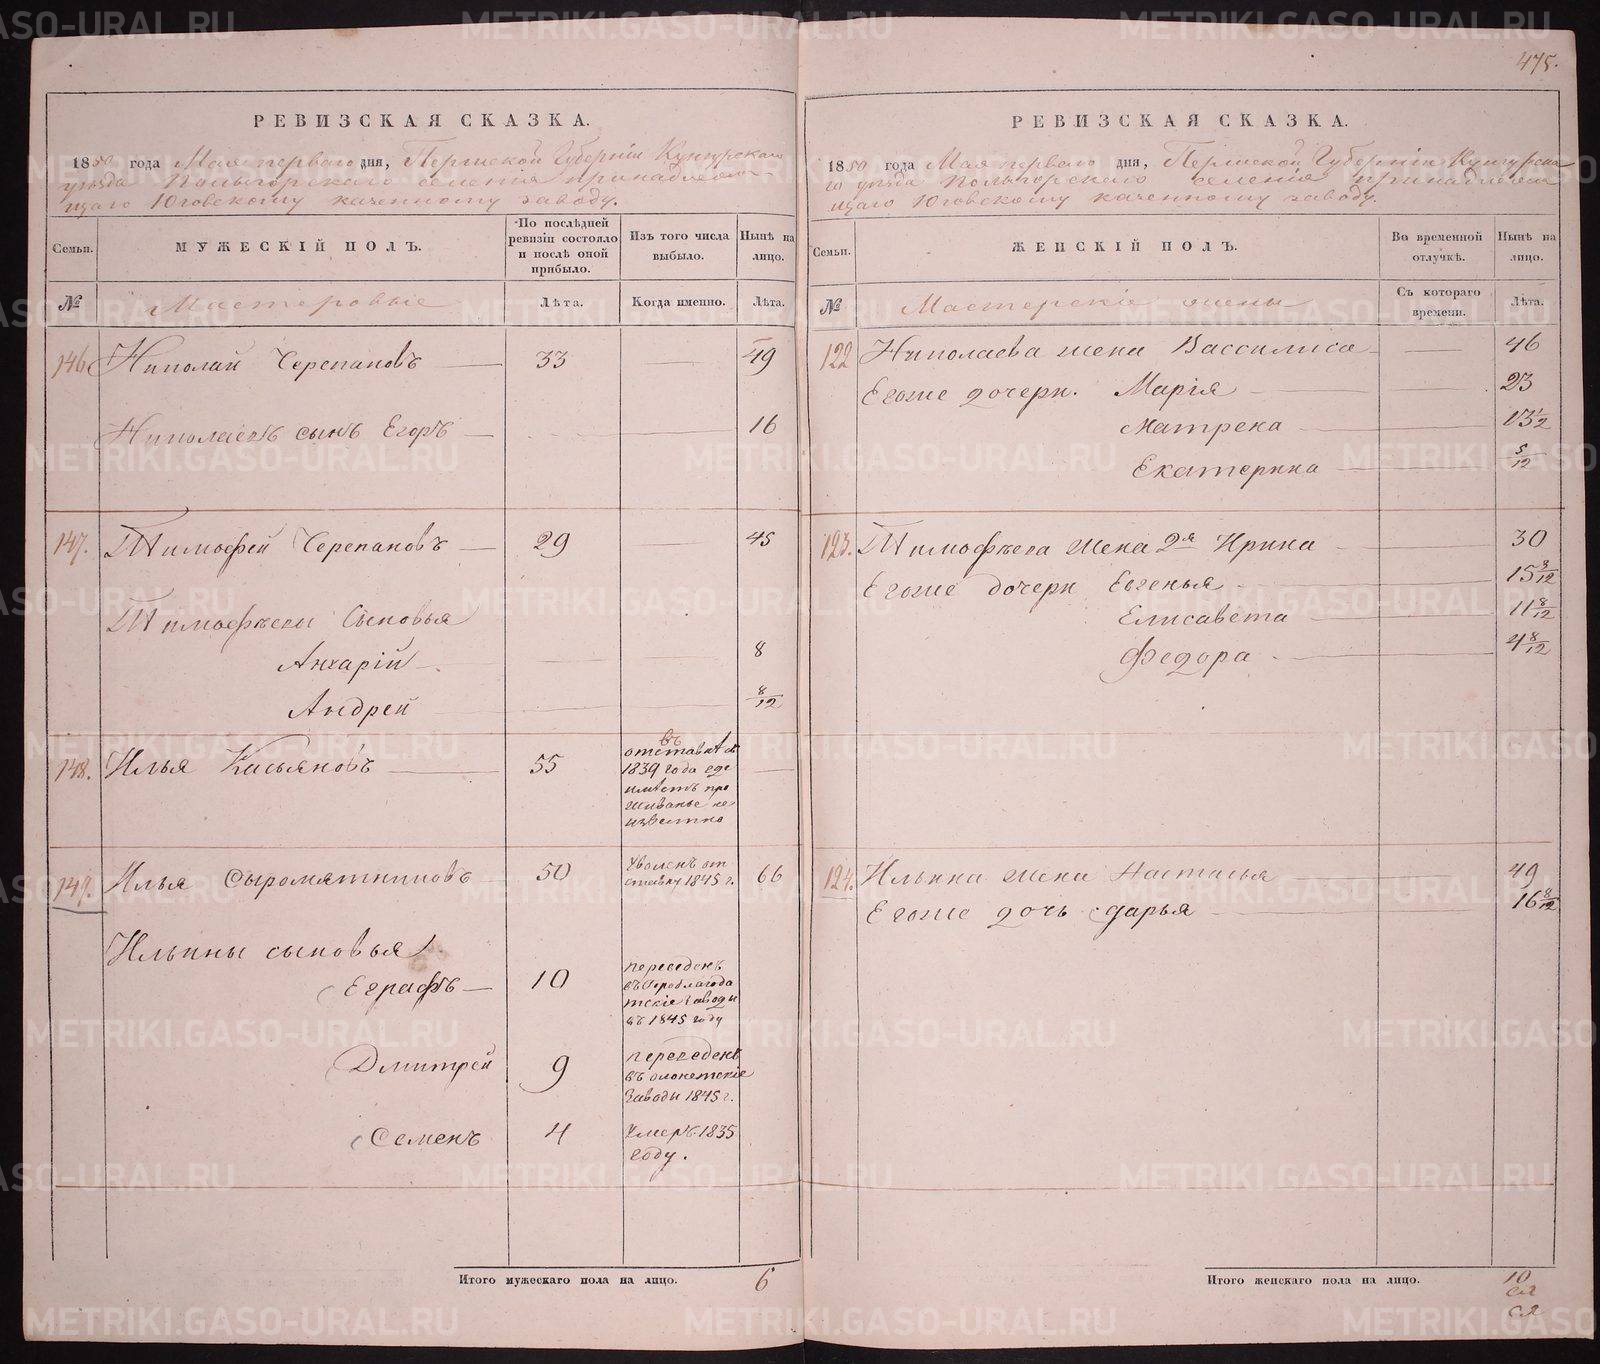 475.
РЕВИЗСКАЯ СКАЗКА.
1850 года Мая перваго дня, Пермской Губерніи Кунгурскаго
уѣзда селенія принадлежа-
щаго Юговскому казенному заводу.
Семьи.
МУЖЕСКІЙ ПОЛЪ.
По послѣдней
ревизіи состояло
и послѣ оной
прибыло.
Изъ того числа
выбыло.
Нынѣ на
лицо.
№
Мастеровые
Лѣта.
Когда именно.
Лѣта.
146 Николай Черепановъ 33 49
Николаевъ сынъ Егоръ 16
147. Тимофей Черепановъ 29 45
Тимофѣевы Сыновья
8
Андрей 8/12
148. Илья Касьяновъ 55
въ
отставкѣ съ
1839 года гдѣ
имѣетъ про
живанье не
извѣстно
149. Илья Сыромятниковъ 50 66
Уволенъ от
ставку 1845 г.
Ильины сыновья
Еграфъ 10
переведенъ
въ Гороблагода
тскіе Заводы
въ 1845 году
Дмитрей 9
переведенъ
въ олонетскіе
Заводы 1845 г.
Семенъ 4
Умеръ 1835
году.
Итого мужескаго пола на лицо. 6
РЕВИЗСКАЯ СКАЗКА.
1850 года Мая перваго дня, Пермской Губерніи Кунгурска
го уѣзда селенія принадлежа
щаго Юговскому казенному заводу.
Семьи.
ЖЕНСКІЙ ПОЛЪ.
Во временной
отлучкѣ.
Нынѣ на
лицо.
№
Мастерскіе жены
Съ котораго
времени.
Лѣта.
122 Николаева жена Вассилиса 46
Егоже дочери. Марія 23
Матрена 13 1/2
Екатерина 5/12
123. Тимофѣева жена 2я Ирина 30
Егоже дочери Евгенья 15 3/12
Елисавета 11 8/12
Федора 4 8/12
124. Ильина жена Настасья 49
Егоже дочь Дарья 16 8/12
Итого женскаго пола на лицо. 10
METRIKI.GASO-URAL.RU